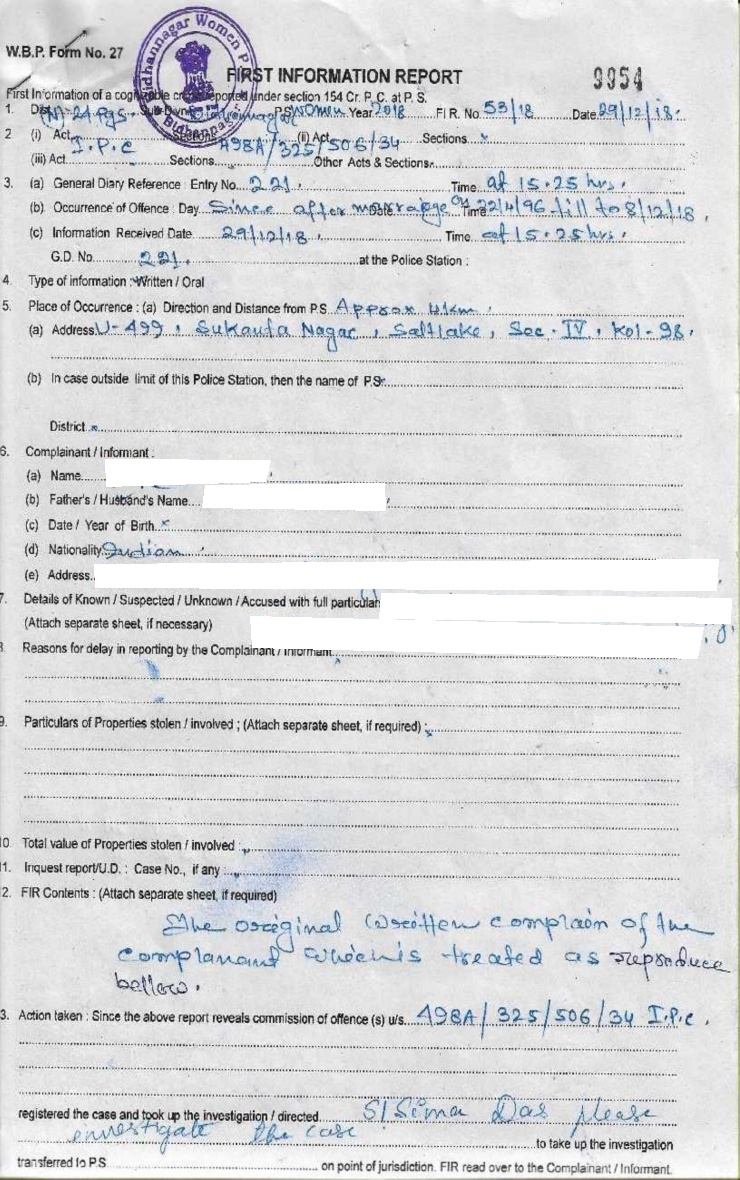 Bidhannagar Women P
Bidhannag
W.B.P. Form No. 27
FIRST INFORMATION REPORT
9954
First Information of a cognizable crime reported under section 154 Cr. P. C. at P. S.
1. Dist. (N) 24 Pgs. Sub-Divn. Bidhannagar P.S. Women Year 2018 F I R. No. 53/18 Date 29/12/18.
2 (i) Act I.P.C Sections 498A/325/506/34 (ii) Act Sections x
(iii) Act Sections Other Acts & Sections
3. (a) General Diary Reference : Entry No. 221. Time at 15.25 hrs.
(b) Occurrence of Offence : Day Since after marrage on 22/4/96 till to 8/12/18,
(c) Information Received Date 29/12/18. Time at 15.25 hrs.
G.D. No. 221. at the Police Station :
4. Type of information : Written / Oral
5. Place of Occurrence : (a) Direction and Distance from P.S. Approx 4 km.
(a) Address U-499, Sukanta Nagar, Saltlake, Sec. IV, Kol-98.
(b) In case outside limit of this Police Station, then the name of P.S
District
6. Complainant / Informant :
(a) Name
(b) Father's / Husband's Name
(c) Date / Year of Birth x
(d) Nationality Indian.
(e) Address.
7. Details of Known / Suspected / Unknown / Accused with full particular
(Attach separate sheet, if necessary)
Reasons for delay in reporting by the Complainant / Informant
9. Particulars of Properties stolen / involved ; (Attach separate sheet, if required) :
10. Total value of Properties stolen / involved :
1. Inquest report/U.D. : Case No., if any :
2. FIR Contents : (Attach separate sheet, if required)
The original written complain of the
complanant which is treated as reproduce
bellow.
3. Action taken : Since the above report reveals commission of offence (s) u/s. 498A/325/506/34 I.P.C.
registered the case and took up the investigation / directed. S/Sima Das please
investigate the case to take up the investigation
transferred to P.S. on point of jurisdiction. FIR read over to the Complainant / Informant.